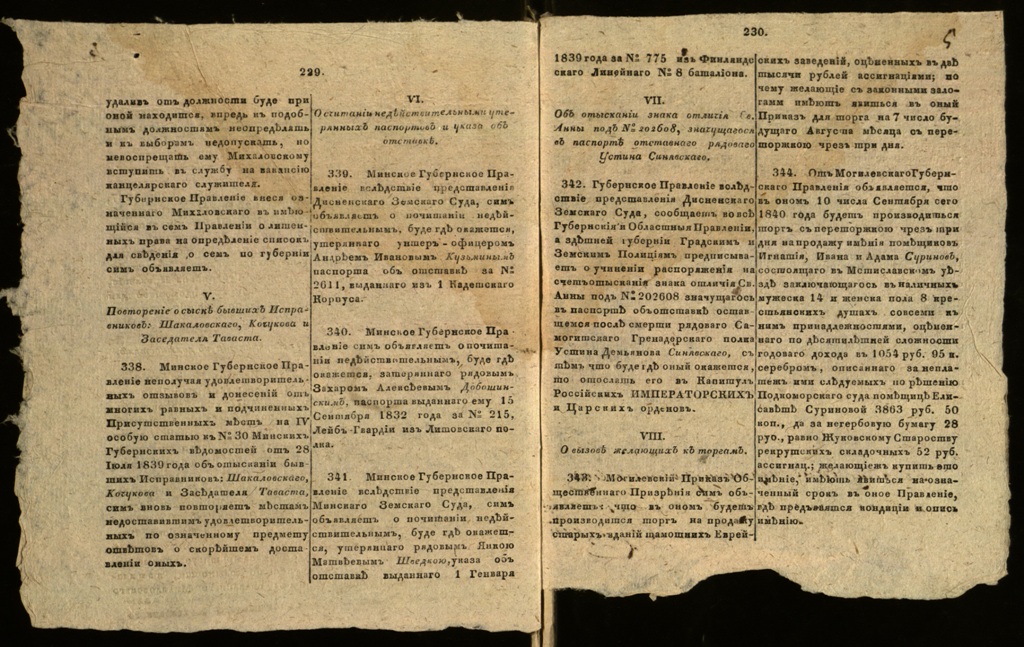 229.
удаливъ отъ должности буде при
оной находится, впредь къ подоб-
нымъ должностямъ неопредѣлять
и къ выборамъ недопускать, но
невоспрещать ему Михаловскому
вступить въ службу на вакансію
канцелярскаго служителя.
Губернское Правленіе внеся оз-
наченнаго Михловскаго въ имѣю-
щійся въ семъ Правленіи о лишен-
ныхъ права на опредѣленіе списокъ
для свѣденія о семъ по губерніи
симъ объявляетъ.
V.
Повтореніе о сыскѣ бывшихъ Испра-
вниковъ: Шакаловскаго, Кочукова и
Засѣдателя Таваста.
338. Минское Губернское Пра-
вленіе неполучая удовлетворитель-
ныхъ отзывовъ и донесеній отъ
многихъ равныхъ и подчиненныхъ
Присутственныхъ мѣстъ на IV
особую статью въ № 30 Минскихъ
Губернскихъ вѣдомостей отъ 28
Іюля 1839 года объ отысканіи быв-
шихъ Исправниковъ: Шакаловскаго,
Кочукова и Засѣдателя Таваста,
симъ вновь повторяетъ мѣстамъ
недоставившимъ удовлетворитель-
ныхъ по означенному предмету
отвѣтовъ о скорѣйшемъ доста-
вленіи оныхъ.
VI.
О считаніи недѣйствительными уте-
рянныхъ паспортовъ и указа объ
отставкѣ.
339. Минское Губернское Пра-
вленіе вслѣдствіе представленія
Дисненскаго Земскаго Суда, симъ
объявляетъ о почитаніи недѣй-
ствительнымъ, буде гдѣ окажется,
утеряннаго унтеръ-офицеромъ
Андрѣемъ Ивановымъ Кузьминымъ
паспорта объ отставкѣ за №
2611, выданнаго изъ 1 Кадетскаго
Корпуса.
340. Минское Губернское Пра-
вленіе симъ объявляетъ о почита-
ніи недѣйствительнымъ, буде гдѣ
окажется, затеряннаго рядовымъ
Захаромъ Алексѣевымъ Добошин-
скимъ, паспорта выданнаго ему 15
Сентября 1832 года за № 215,
Лейбъ-Гвардіи изъ Литовскаго по-
лка.
341. Минское Губернское Пра-
вленіе вслѣдствіе представленія
Минскаго Земскаго Суда, симъ
объявляетъ о почитаніи недѣй-
ствительнымъ, буде гдѣ окажет-
ся, утеряннаго рядовымъ Янкою
Матвѣевымъ Шведкою, указа объ
отставкѣ выданнаго 1 Генваря
230.
5
1839 года за № 775 изъ Финляндс
скаго Линейнаго № 8 баталіона.
VII.
Объ отысканіи знака отличія Св.
Анны подъ № 202608, значущагося
въ паспортѣ отставнаго рядоваго
Устина Синявскаго.
342. Губернское Правленіе вслѣд-
ствіе представленія Дисненскаго
Земскаго Суда, сообщаетъ во всѣ
Губернскія и Областныя Правленіи,
а здѣшней губерніи Градскимъ и
Земскимъ Полиціямъ предписыва-
етъ о учиненіи распоряженія на
счетъ отысканія знака отличія Св.
Анны подъ № 202608 значущагось
въ паспортѣ объ отставкѣ остав-
щемся послѣ смерти рядоваго Са-
могитскаго Гренадерскаго полка
Устина Демьянова Синявскаго, съ
тѣмъ что буде гдѣ оный окажется,
то отослать его въ Капитулъ
Россійскихъ ИМПЕРАТОРСКИХЪ
и Царскихъ орденовъ.
VIII.
О вызовѣ желающихъ къ торгамъ.
343. Могилевскій Приказъ Об-
щественнаго Призрѣнія симъ объ-
являетъ что въ ономъ будетъ
производится торгъ на продажу
старыхъ зданій тамошнихъ Еврей-
скихъ заведеній, оцѣненныхъ въ двѣ
тысячи рублей ассигнаціями; по
чему желающіе съ законными зало-
гами имѣютъ явиться въ оный
Приказъ для торга на 7 число бу-
дущаго Августа мѣсяца съ пере-
торжкою чрезъ три дня.
344. Отъ Могилевскаго Губерн-
скаго Правленія объявляется, что
въ ономъ 10 числа Сентября сего
1840 года будетъ производиться
торгъ съ переторжкою чрезъ три
дня на продажу имѣнія помѣщиковъ
Игнатія, Ивана и Адама Суриновъ,
состоящаго въ Мстиславскомъ уѣ-
здѣ заключающагось въ наличныхъ
мужеска 14 и женска пола 8 кре-
стьянскихъ душахъ совсеми къ
нимъ принадлежностями, оцѣнен-
наго по десятилѣтней сложности
годоваго дохода въ 1054 руб. 95 к.
серебромъ, описаннаго за непла-
тежъ ими слѣдуемыхъ по рѣшенію
Подкоморскаго суда помѣщицѣ Ели-
саветѣ Суриновой 3863 руб. 50
коп., да за негербовую бумагу 28
руб., равно Жуковскому Староству
рекрутскихъ складочныхъ 52 руб.
ассигнац.; желающіежъ купить ето
имѣніе, имѣютъ явиться на озна-
ченный срокъ въ оное Правленіе,
гдѣ предъявятся кондиціи и опись
имѣнію.